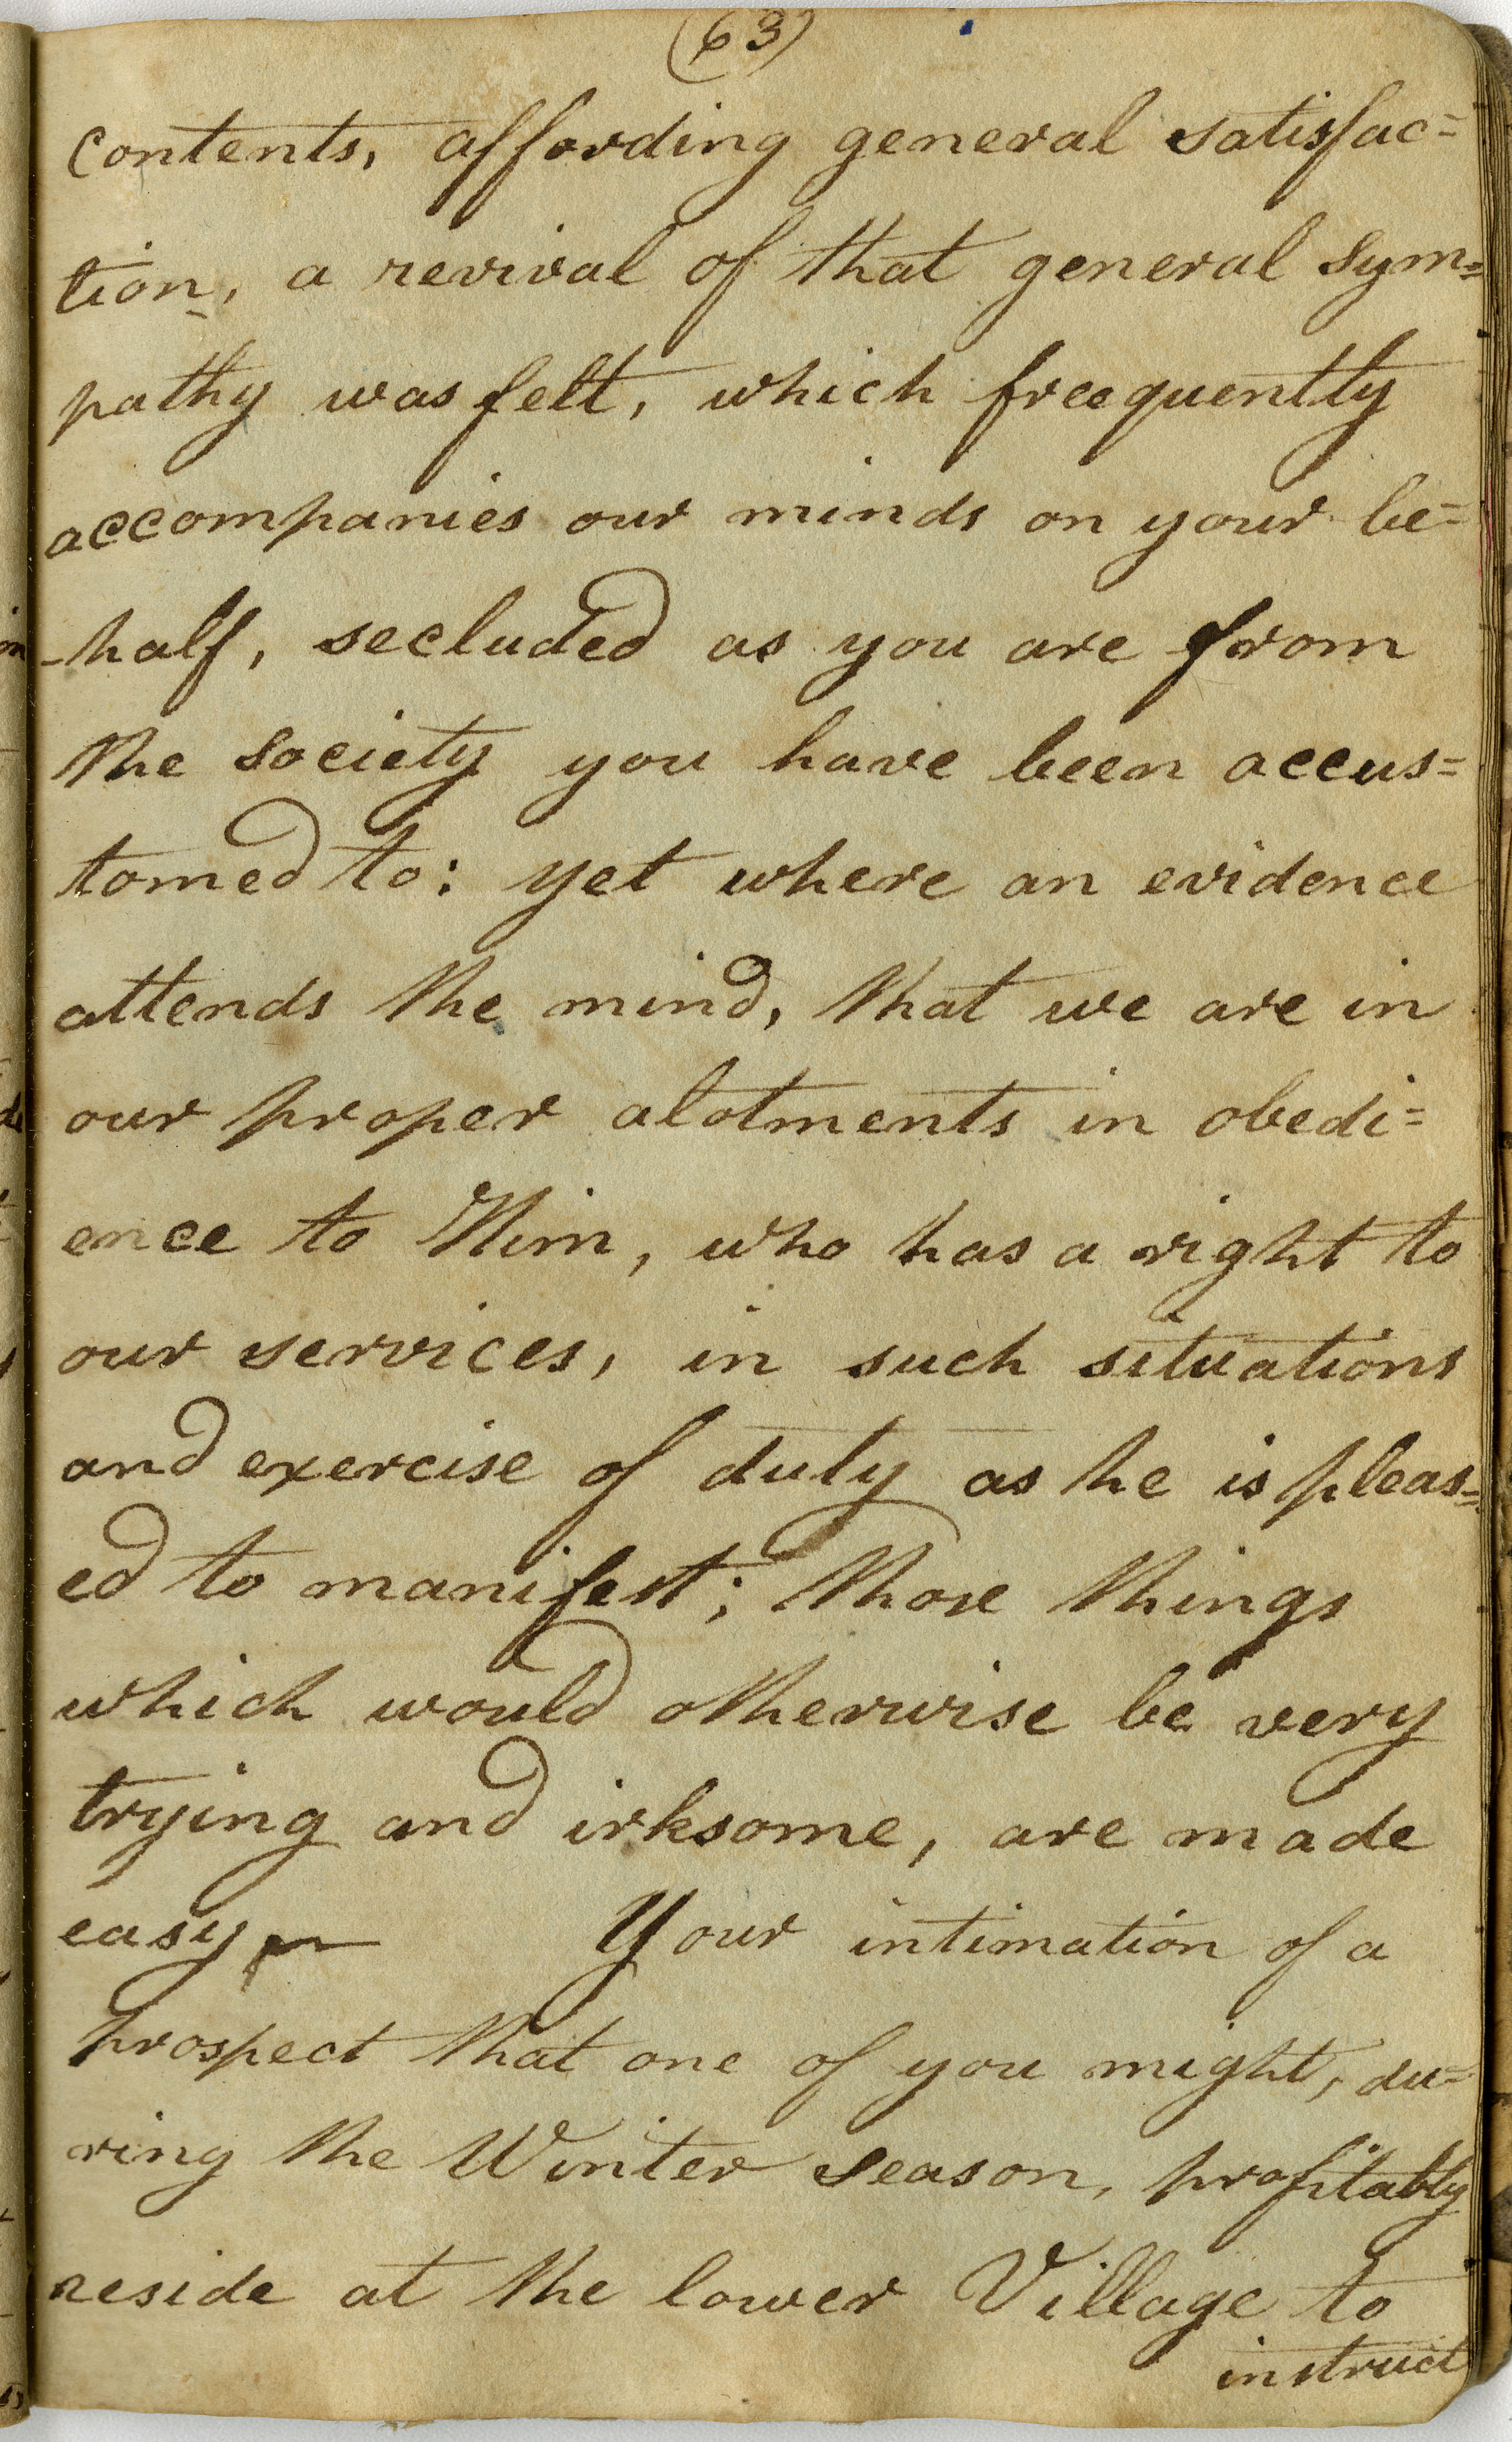 (63)
contents, affording general satisfac=
tion, a revival of that general sym=
pathy was felt, which freequently
accompanies our minds on your be=
-half, secluded as you are from
the society you have been accus=
tomed to: yet where an evidence
attends the mind, that we are in
our proper alotments in obedi=
ence to Him, who has a right to
our services, in such situations
and exercise of duty as he is pleas=
ed to manifest; those things
which would otherwise be very
trying and irksome, are made
easy — Your intimation of a
prospect that one of you might, du=
ring the Winter season, profitably
reside at the lower Village to
instruct